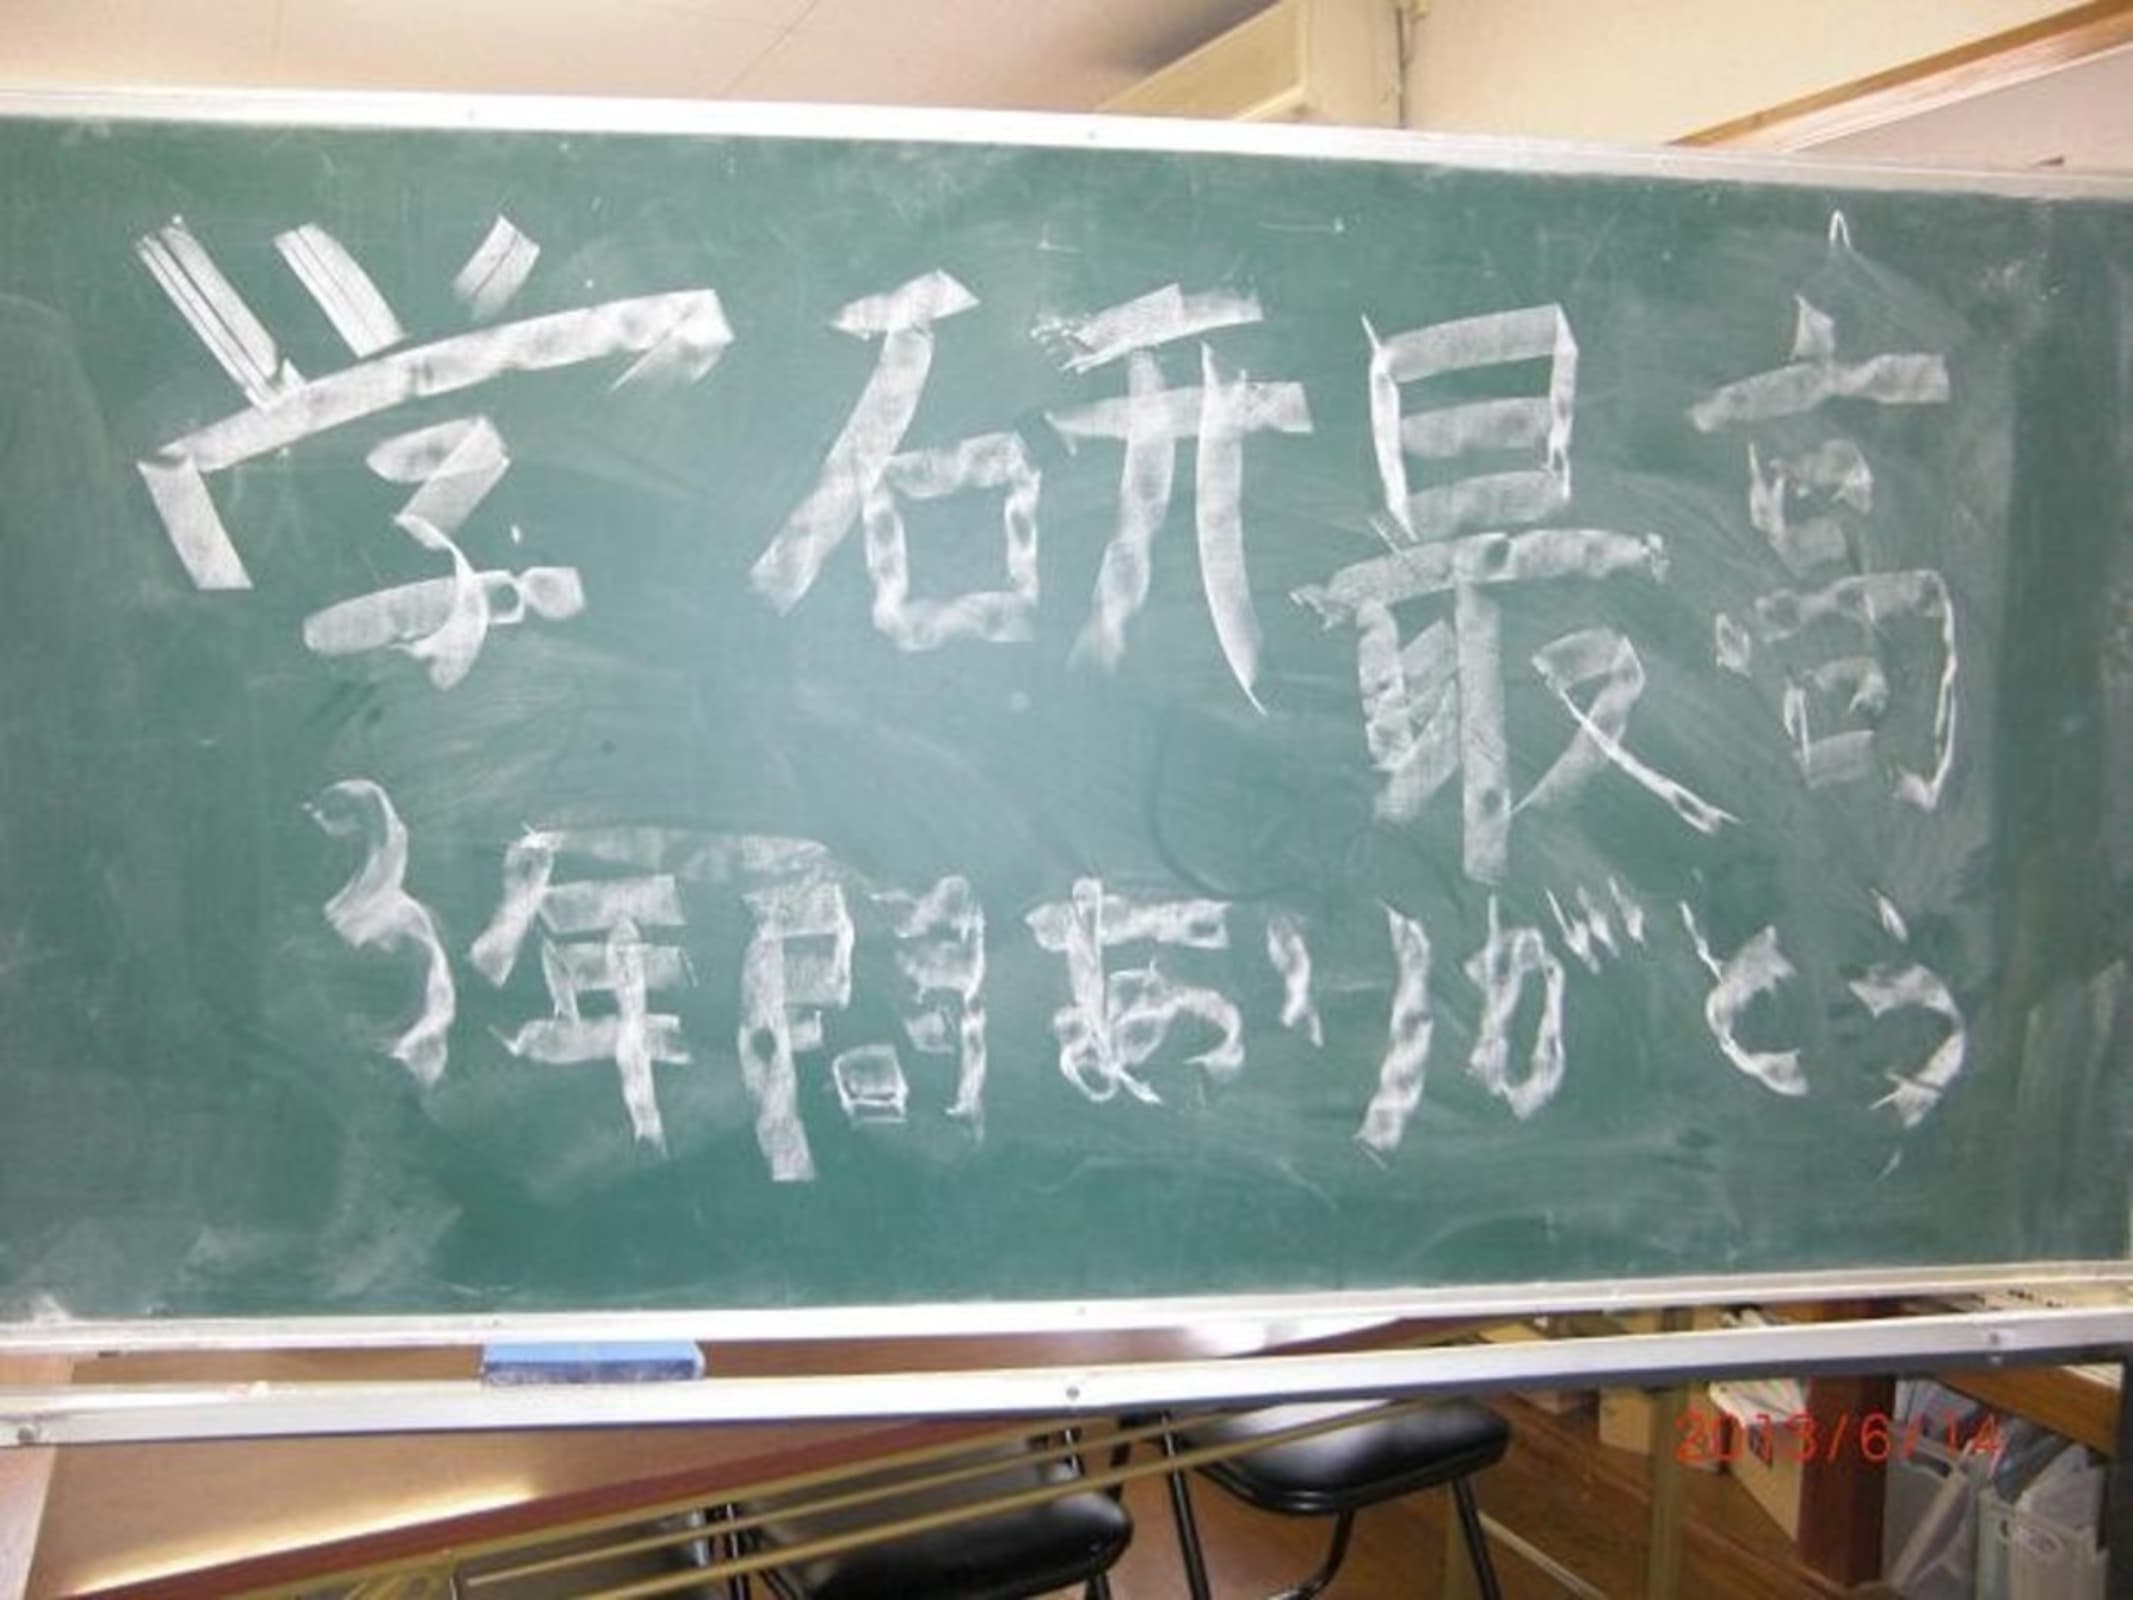 学研最高
3年間ありがとう
2013/6/14